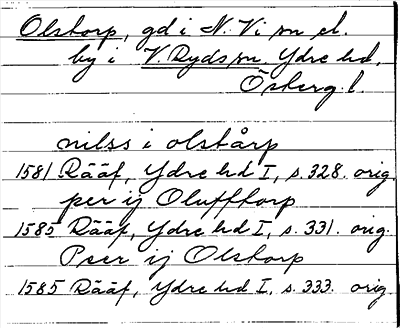 Olstorp, gd i N. Vi sn el.
by i V. Ryds sn. Ydre hd,
Österg. l.
nilss i olstårp
1581 Rääf, Ydre hd I, s. 328. orig.
per ij Olufftorp
1585 Rääf, Ydre hd I, s. 331. orig.
Peer ij Olstorp
1585 Rääf, Ydre hd I, s. 333. orig